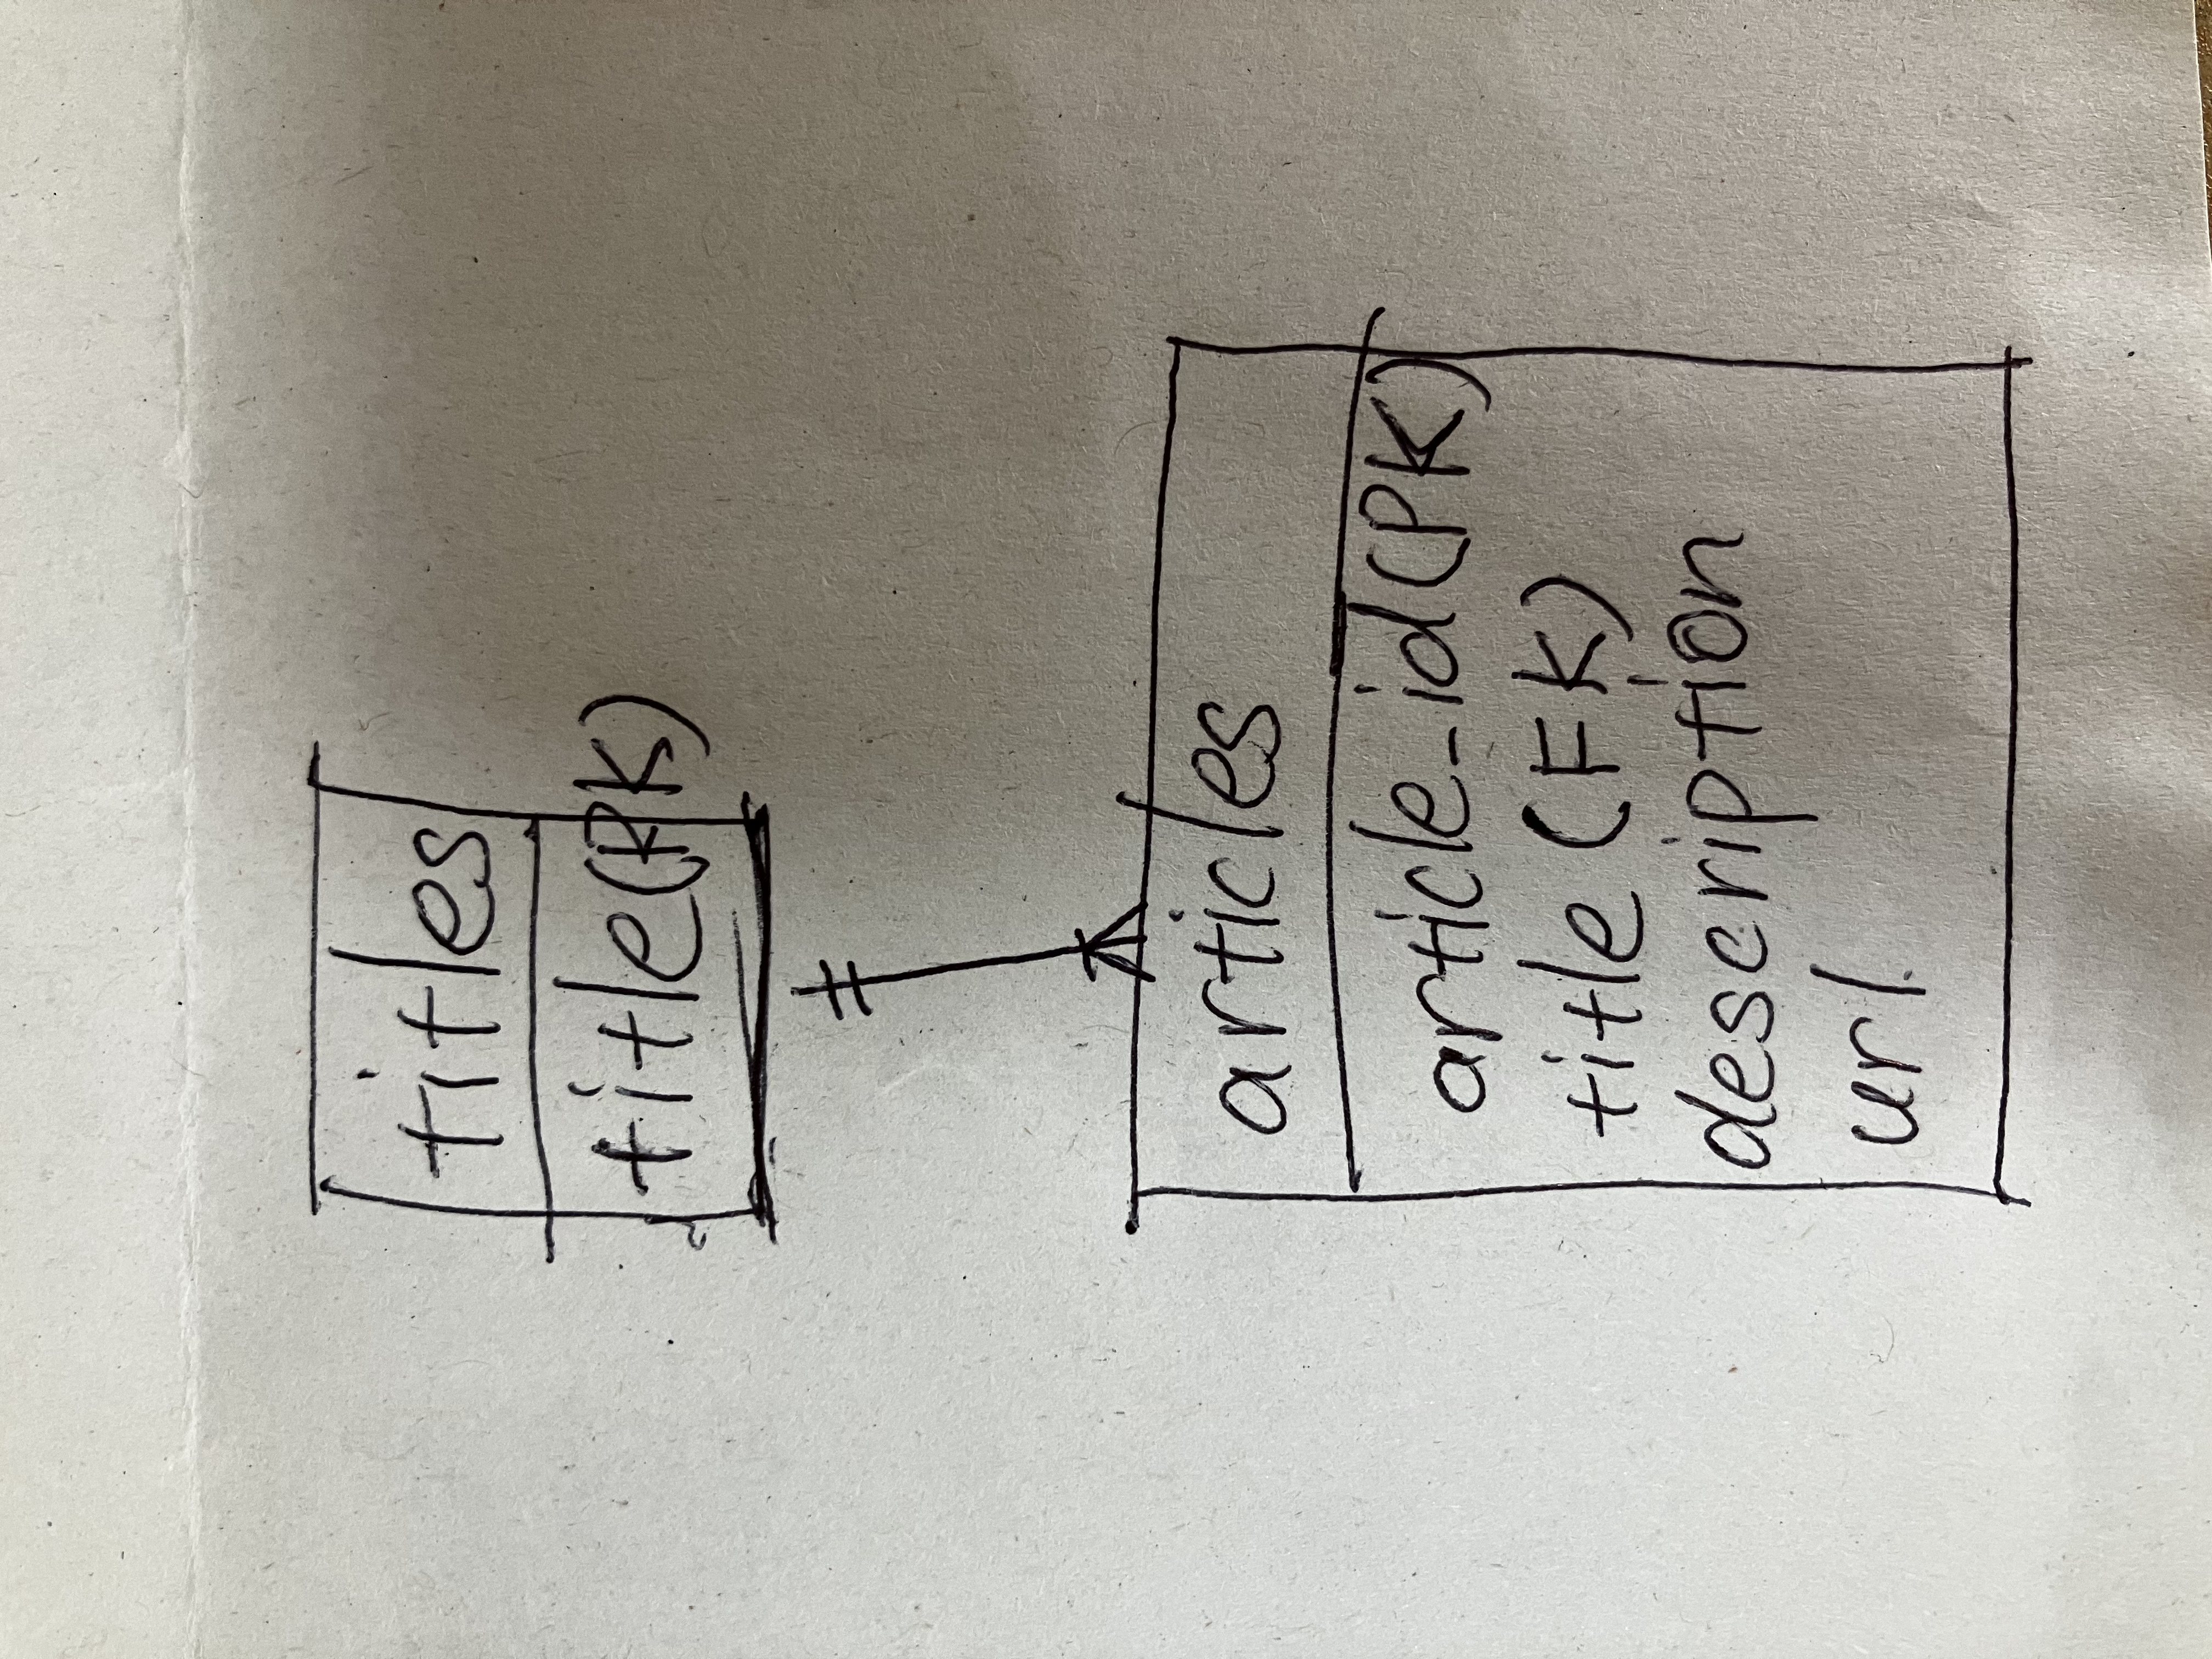 titles
title(PK)
articles
article_id(PK)
title(FK)
description
url